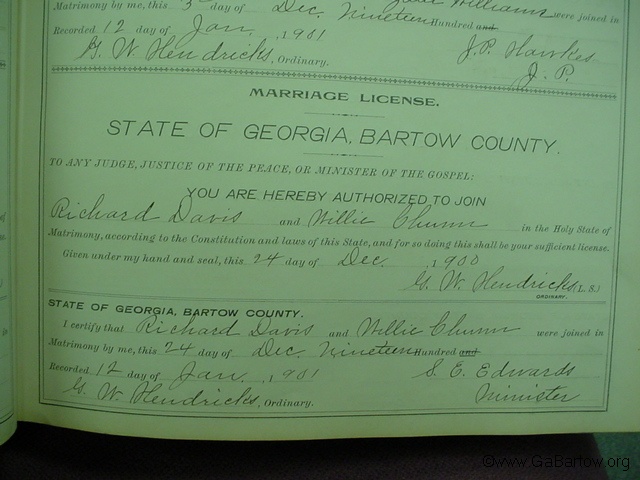 Matrimony by me, this 3 day of Dec. Nineteen Hundred and Williams were joined in
Recorded 12 day of Jan. , 1901 J. P. Hawks
G. W. Hendricks, Ordinary. J. P.
MARRIAGE LICENSE.
STATE OF GEORGIA, BARTOW COUNTY.
TO ANY JUDGE, JUSTICE OF THE PEACE, OR MINISTER OF THE GOSPEL:
YOU ARE HEREBY AUTHORIZED TO JOIN
Richard Davis and Willie Chunn in the Holy State of
Matrimony, according to the Constitution and laws of this State, and for so doing this shall be your sufficient license.
Given under my hand and seal, this 24 day of Dec. , 1900
G. W. Hendricks (L. S.)
ORDINARY.
STATE OF GEORGIA, BARTOW COUNTY.
I certify that Richard Davis and Willie Chunn were joined in
Matrimony by me, this 24 day of Dec. Nineteen Hundred and
Recorded 12 day of Jan. , 1901 S. E. Edwards
G. W. Hendricks, Ordinary. Minister
©www.GaBartow.org